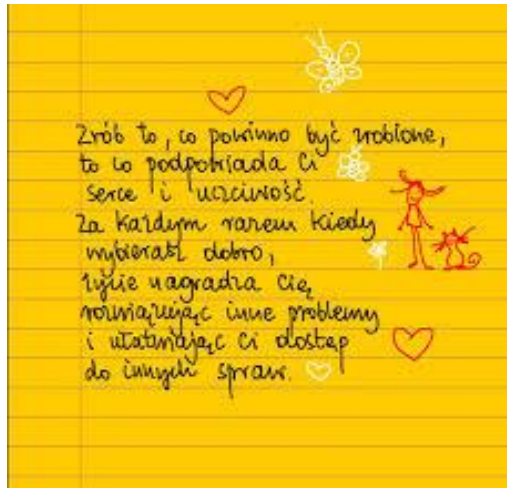 Zrób to, co powinno być zrobione,
to co podpowiada Ci
serce i uczciwość.
Za każdym razem kiedy
wybierasz dobro,
życie nagradza Cię,
rozwiązując inne problemy
i ułatwiając Ci dostęp
do innych spraw.